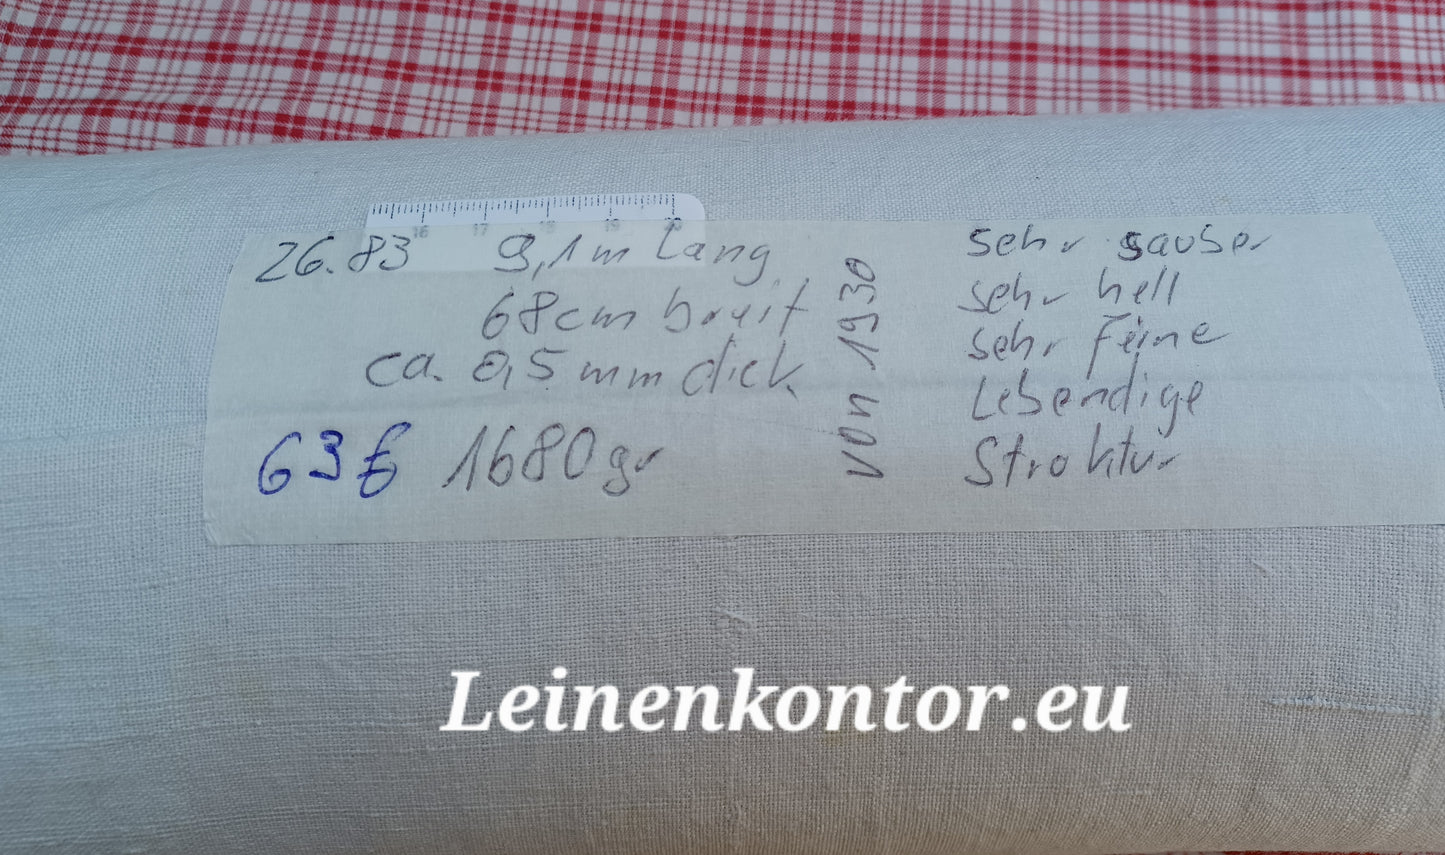 16 17 18 19
26.83 9,1m Lang
68cm breit
ca. 0,5 mm dick
63€ 1680gr
von 1930
sehr sauber
sehr hell
sehr Feine
Lebendige
Struktur
Leinenkontor.eu